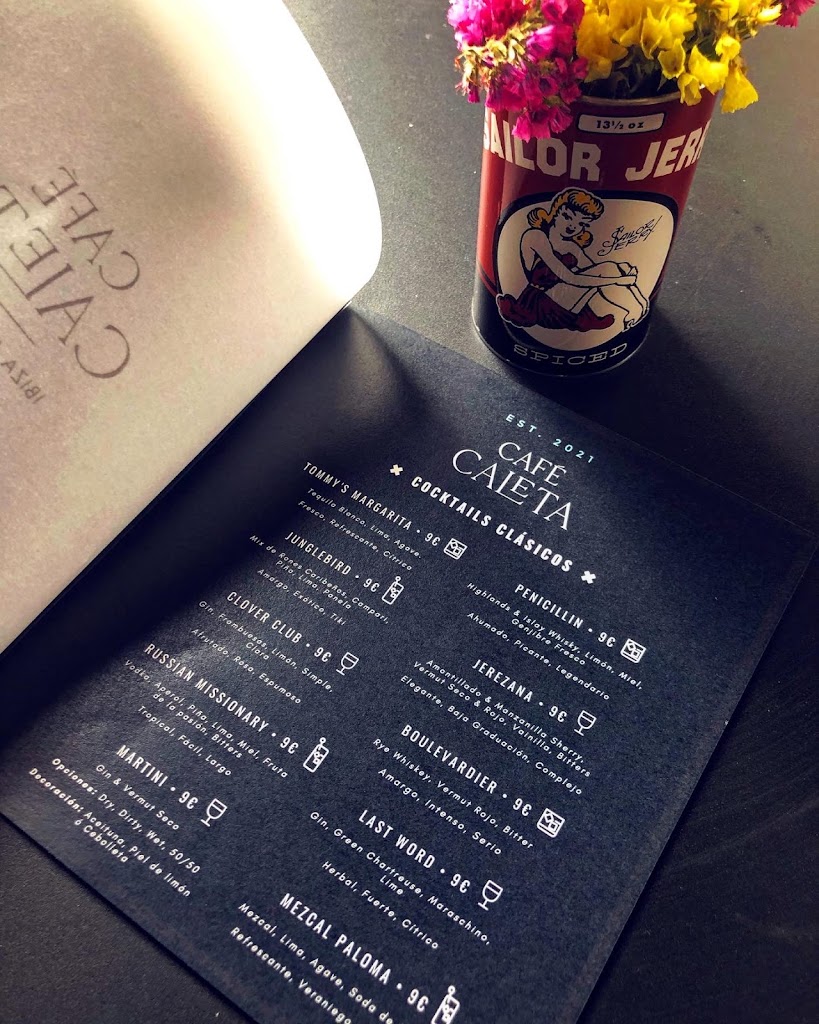 13½ oz
SAILOR JERR
SAILOR
JERRY
SPICED
CAFÉ
CAIET
IBIZA
EST. 2021
CAFÉ
CALETA
COCKTAILS CLÁSICOS
TOMMY'S MARGARITA • 9€
Tequila Blanco, Lima, Agave
Fresco, Refrescante, Cítrico
JUNGLEBIRD • 9€
Mix de Rones Caribeños, Campari,
Piña, Lima, Panela
Amargo, Exótico, Tiki
CLOVER CLUB • 9€
Gin, Frambuesas, Limón, Simple,
Clara
Afrutado, Rosa, Espumoso
RUSSIAN MISSIONARY • 9€
Vodka, Aperol, Piña, Lima, Miel, Fruta
de la pasión, Bitters
Tropical, Fácil, Largo
MARTINI • 9€
Gin & Vermut Seco
Opciones: Dry, Dirty, Wet, 50/50
Decoración: Aceituna, Piel de limón
ó Cebolleta
PENICILLIN • 9€
Highlands & Islay Whisky, Limón, Miel,
Genjibre Fresco
Ahumado, Picante, Legendario
JEREZANA • 9€
Amontillado & Manzanilla Sherry,
Vermut Seco & Rojo, Vainilla, Bitters
Elegante, Baja Graduación, Complejo
BOULEVARDIER • 9€
Rye Whiskey, Vermut Rojo, Bitter
Amargo, Intenso, Serio
LAST WORD • 9€
Gin, Green Chartreuse, Maraschino,
Lime
Herbal, Fuerte, Cítrico
MEZCAL PALOMA • 9€
Mezcal, Lima, Agave, Soda de
Refrescante, Veraniego